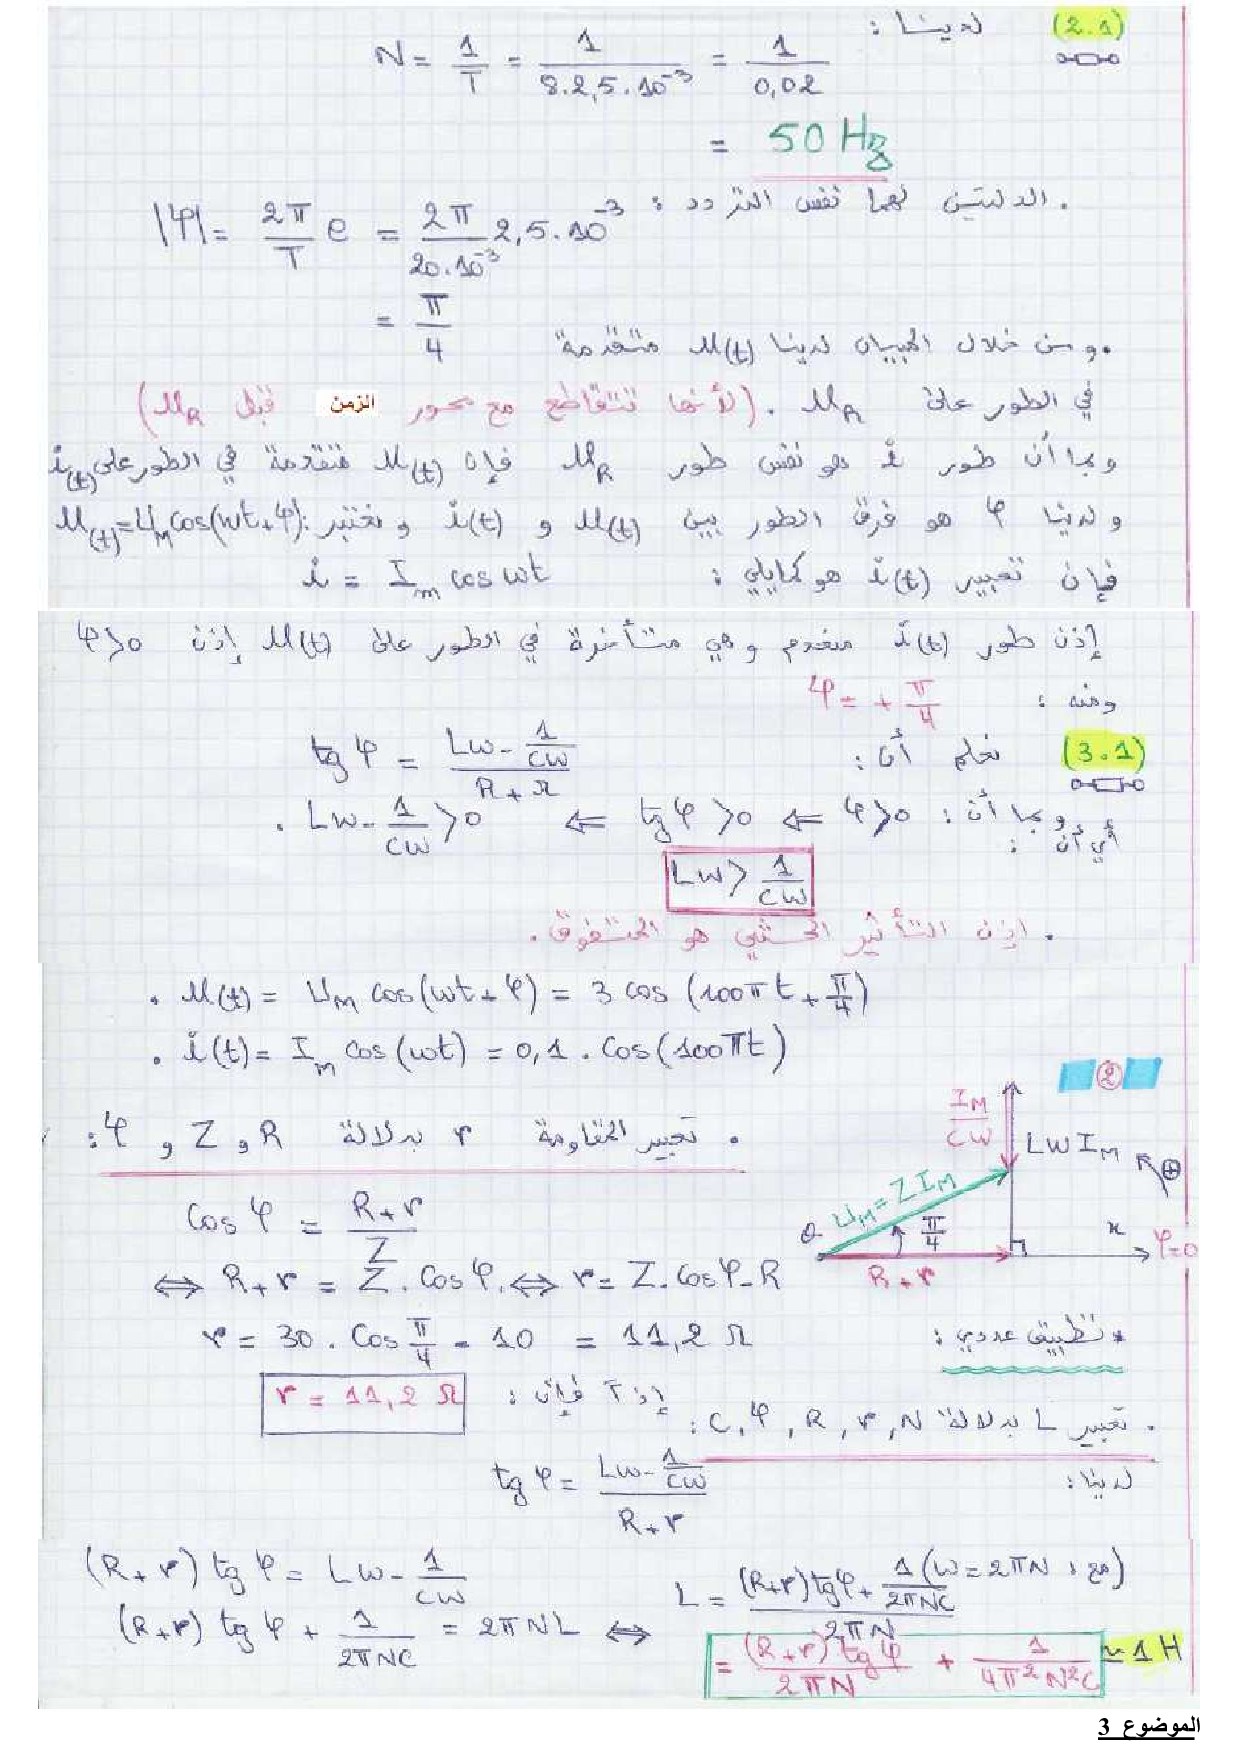 (2.1) لدينا :
N = 1/T = 1/(8.2,5.10⁻³) = 1/0,02
= 50 Hz
. الدالتين لهما نفس التردد :
|φ| = 2π/T e = 2π/(20.10⁻³) 2,5.10⁻³
= π/4
. ومن خلال المبيان لدينا u(t) متقدمة
في الطور على u_R . (لأنها تتقاطع مع محور الزمن قبل u_R)
وبما أن طور i هو نفس طور u_R فإن u(t) متقدمة في الطور على i(t)
ولدينا φ هو فرق الطور بين u(t) و i(t) ونعتبر : u(t) = U_M cos(wt+φ)
فإن تعبير i(t) هو كمايلي : i = I_m cos wt
إذن طور i(t) منعدم وهي متأخرة في الطور على u(t) إذن φ>0
ومنه : φ = + π/4
(3.1) نعلم أن : tg φ = (Lw - 1/cw)/(R+r)
وبما أن : φ>0 ⇐ tg φ >0 ⇐ Lw - 1/cw >0 .
أي أن : Lw > 1/cw
. إذن التأثير الحثي هو المتفوق .
. u(t) = U_M cos(wt+φ) = 3 cos(100πt + π/4)
. i(t) = I_m cos(wt) = 0,1 . cos(100πt)
2
I_M/CW
LWI_M
⊕
U_M = Z I_M
θ
π/4
x
φ=0
R+r
. تعبير المقاومة r بدلالة R و Z و φ :
Cos φ = (R+r)/Z
⇔ R+r = Z . Cos φ . ⇔ r = Z . Cos φ - R
* تطبيق عددي :
r = 30 . Cos π/4 - 10 = 11,2 Ω
إذا فإن : r = 11,2 Ω
. تعبير L بدلالة C, φ, R, r, N :
لدينا : tg φ = (Lw - 1/cw)/(R+r)
(R+r) tg φ = Lw - 1/cw
(R+r) tg φ + 1/(2πNC) = 2πNL ⇔ L = ((R+r) tg φ + 1/(2πNC))/(2πN) (w = 2πN ; مع)
= (R+r) tg φ/(2πN) + 1/(4π²N²C) ≈ 1 H
الموضوع 3